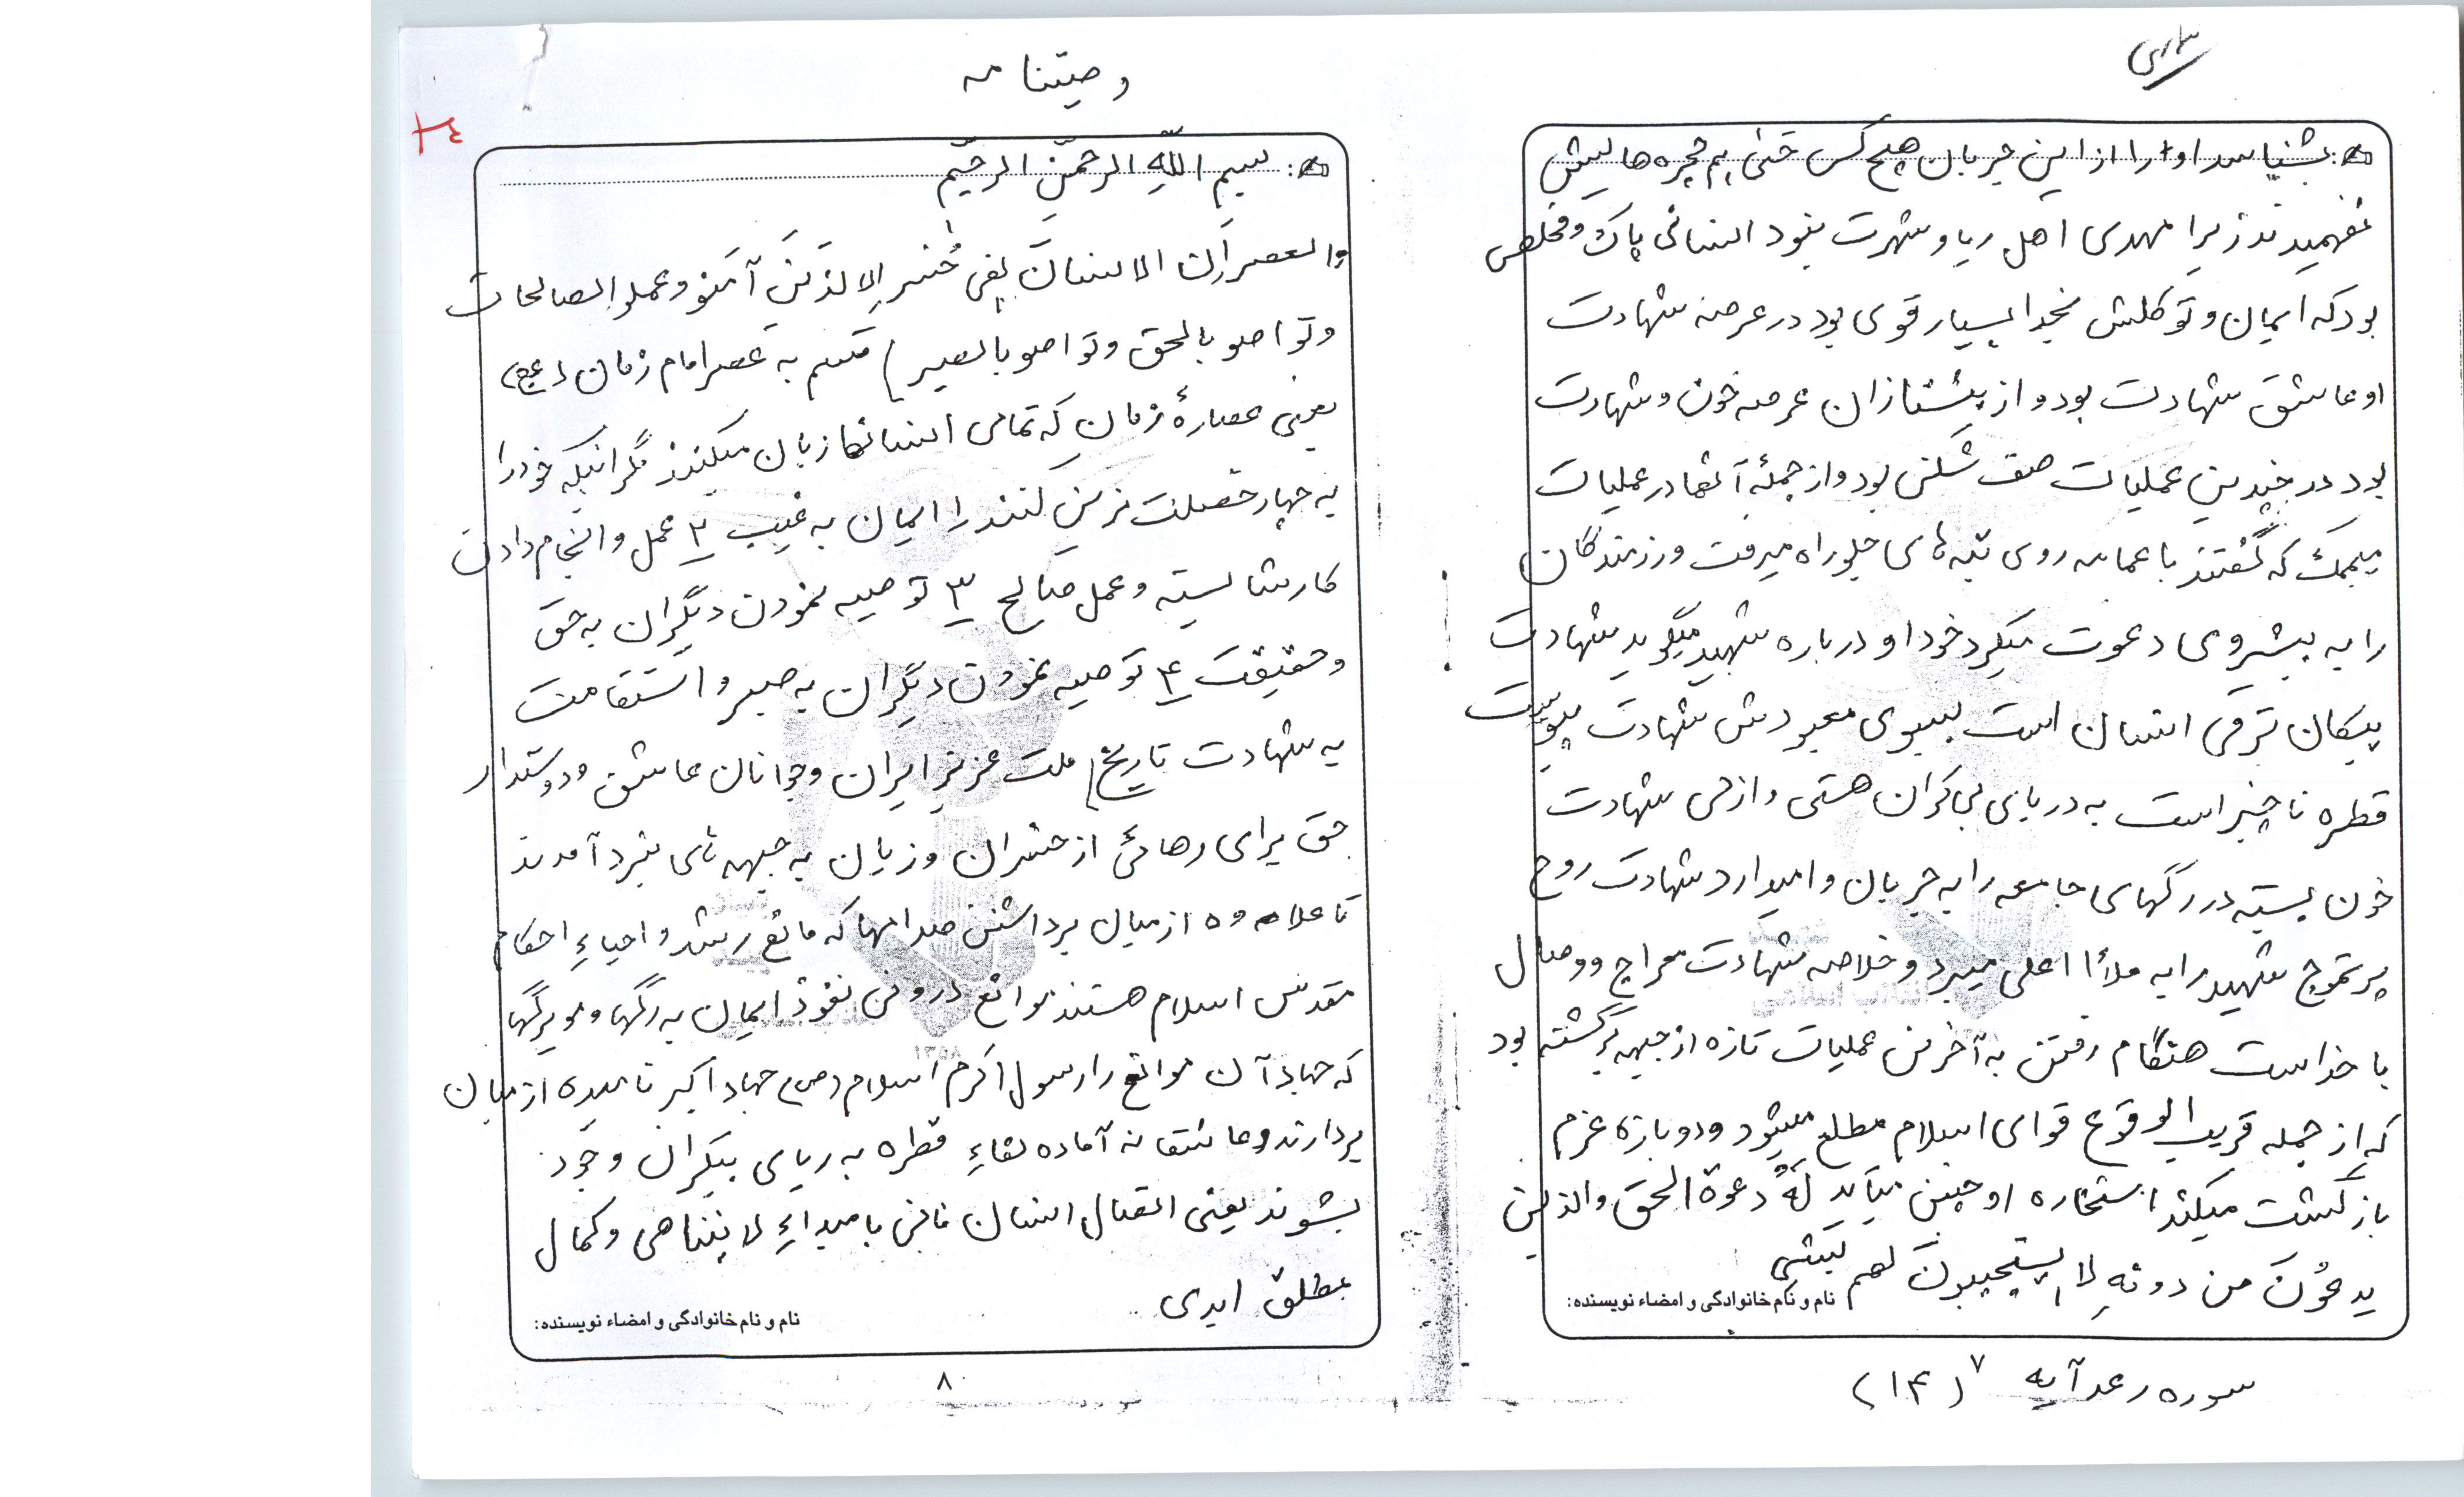 بشناسد او را از این جریان هیچ کس حتی هم حجره هایش
نفهمیدند زیرا مهدی اهل ریا و شهرت نبود انسانی پاک و مخلص
بود که ایمان و توکلش بخدا بسیار قوی بود در عرصه شهادت
او عاشق شهادت بود و از پیشتازان عرصه خون و شهادت
بود در چندین عملیات صف شکن بود و از جمله آنها در عملیات
میمک که گفتند با عمامه روی تپه های جلو راه میرفت و رزمندگان
را به پیشروی دعوت میکرد خود او درباره شهید میگوید شهادت
پیکان ترقی انسان است بسوی معبودش شهادت پیوست
قطره ناچیز است به دریای بی کران هستی و ازلی شهادت
خون بسته در رگهای جامعه را به جریان وامیدارد شهادت روح
پرتموج شهید را به ملأ اعلی میبرد و خلاصه شهادت معراج و وصال
با خداست هنگام رفتن به آخرین عملیات تازه از جبهه برگشته بود
که از حمله قریب الوقوع قوای اسلام مطلع میشود و دوباره عزم
بازگشت میکند استخاره او چنین میآید لَهُ دعوة الحق والذین
یدعُونَ من دونِهِ لا یستجیبونَ لهم بشیءٍ
نام و نام خانوادگی و امضاء نویسنده:
سوره رعد آیه (۱۴)
۷
وصیتنامه
۳۴
بسم اللهِ الرحمّنِ الرحیّم
والعصر اِن الانسانَ لفی خُسر اِلا الذّینَ آمنو و عملو الصالحات
وتواصو بالحق وتواصو بالصبر) قسم به عصر امام زمان (عج)
یعنی عصارهٔ زمان که تمامی انسانها زیان میکنند مگر اینکه خود را
به چهار خصلت مزین کنند ۱ ایمان به غیب ۲ عمل و انجام دادن
کار شایسته و عمل صالح ۳ توصیه نمودن دیگران به حق
وحقیقت ۴ توصیه نمودن دیگران به صبر و استقامت
به شهادت تاریخ ملت عزیز ایران و جوانان عاشق و دوستدار
حق برای رهائی از خسران و زیان به جبهه های نبرد آمدند
تا علاوه از میان برداشتن صدامها که مانع رشد و احیاءِ احکام
مقدس اسلام هستند موانع درونی نفوذ ایمان به رگها و مویرگها
که جهاد آن موانع را رسول اکرم اسلام (ص) جهاد اکبر نامیده از میان
بردارند و عاشقانه آماده لقاءِ قطره به دریای بیکران وجود
بشوند یعنی اتصال انسان فانی با مبداءِ لا یتناهی و کمال
مطلق ابدی
نام و نام خانوادگی و امضاء نویسنده:
۸